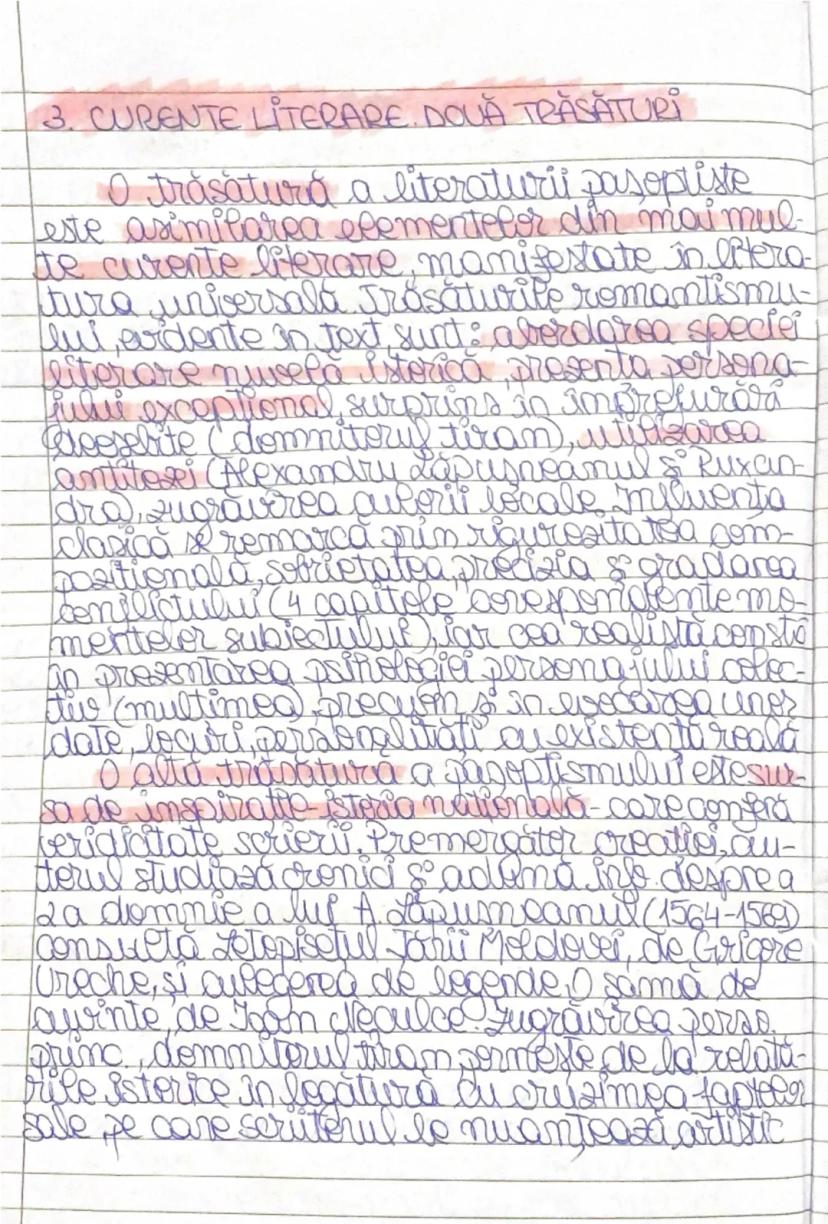 3. CURENTE LITERARE. DOUĂ TRĂSĂTURI
O trăsătură a literaturii pașoptiste
este asimilarea elementelor din mai mul-
te curente literare, manifestate în litera-
tura universală. Trăsăturile romantismu-
lui, evidente în text, sunt: abordarea speciei
literare nuvelă istorică, prezența persona-
jului excepțional, surprins în împrejurări
deosebite (domnitorul tiran), utilizarea
antitezei (Alexandru Lăpușneanul și Ruxan-
dra), zugrăvirea culorii locale. Influența
clasică se remarcă prin rigurozitatea com-
pozițională, sobrietatea, precizia și gradarea
conflictului (4 capitole corespondente mo-
mentelor subiectului), iar cea realistă constă
în prezentarea psihologiei personajului colec-
tiv (mulțimea), precum și în evocarea unor
date, locuri, personalități cu existență reală
O altă trăsătură a pașoptismului este sur-
sa de inspirație-istoria națională-care conferă
veridicitate scrierii. Premergător creației, au-
torul studiază cronici și adună info. despre a
2a domnie a lui A. Lăpușneanul (1564-1569)
consultă Letopisețul Țării Moldovei, de Grigore
Ureche, și culegerea de legende, O samă de
cuvinte, de Ioan Neculce. Zugrăvirea perso.
princ., domnitorul tiran, pornește de la relată-
rile istorice în legătură cu cruzimea faptelor
sale, pe care scriitorul le nuanțează artistic